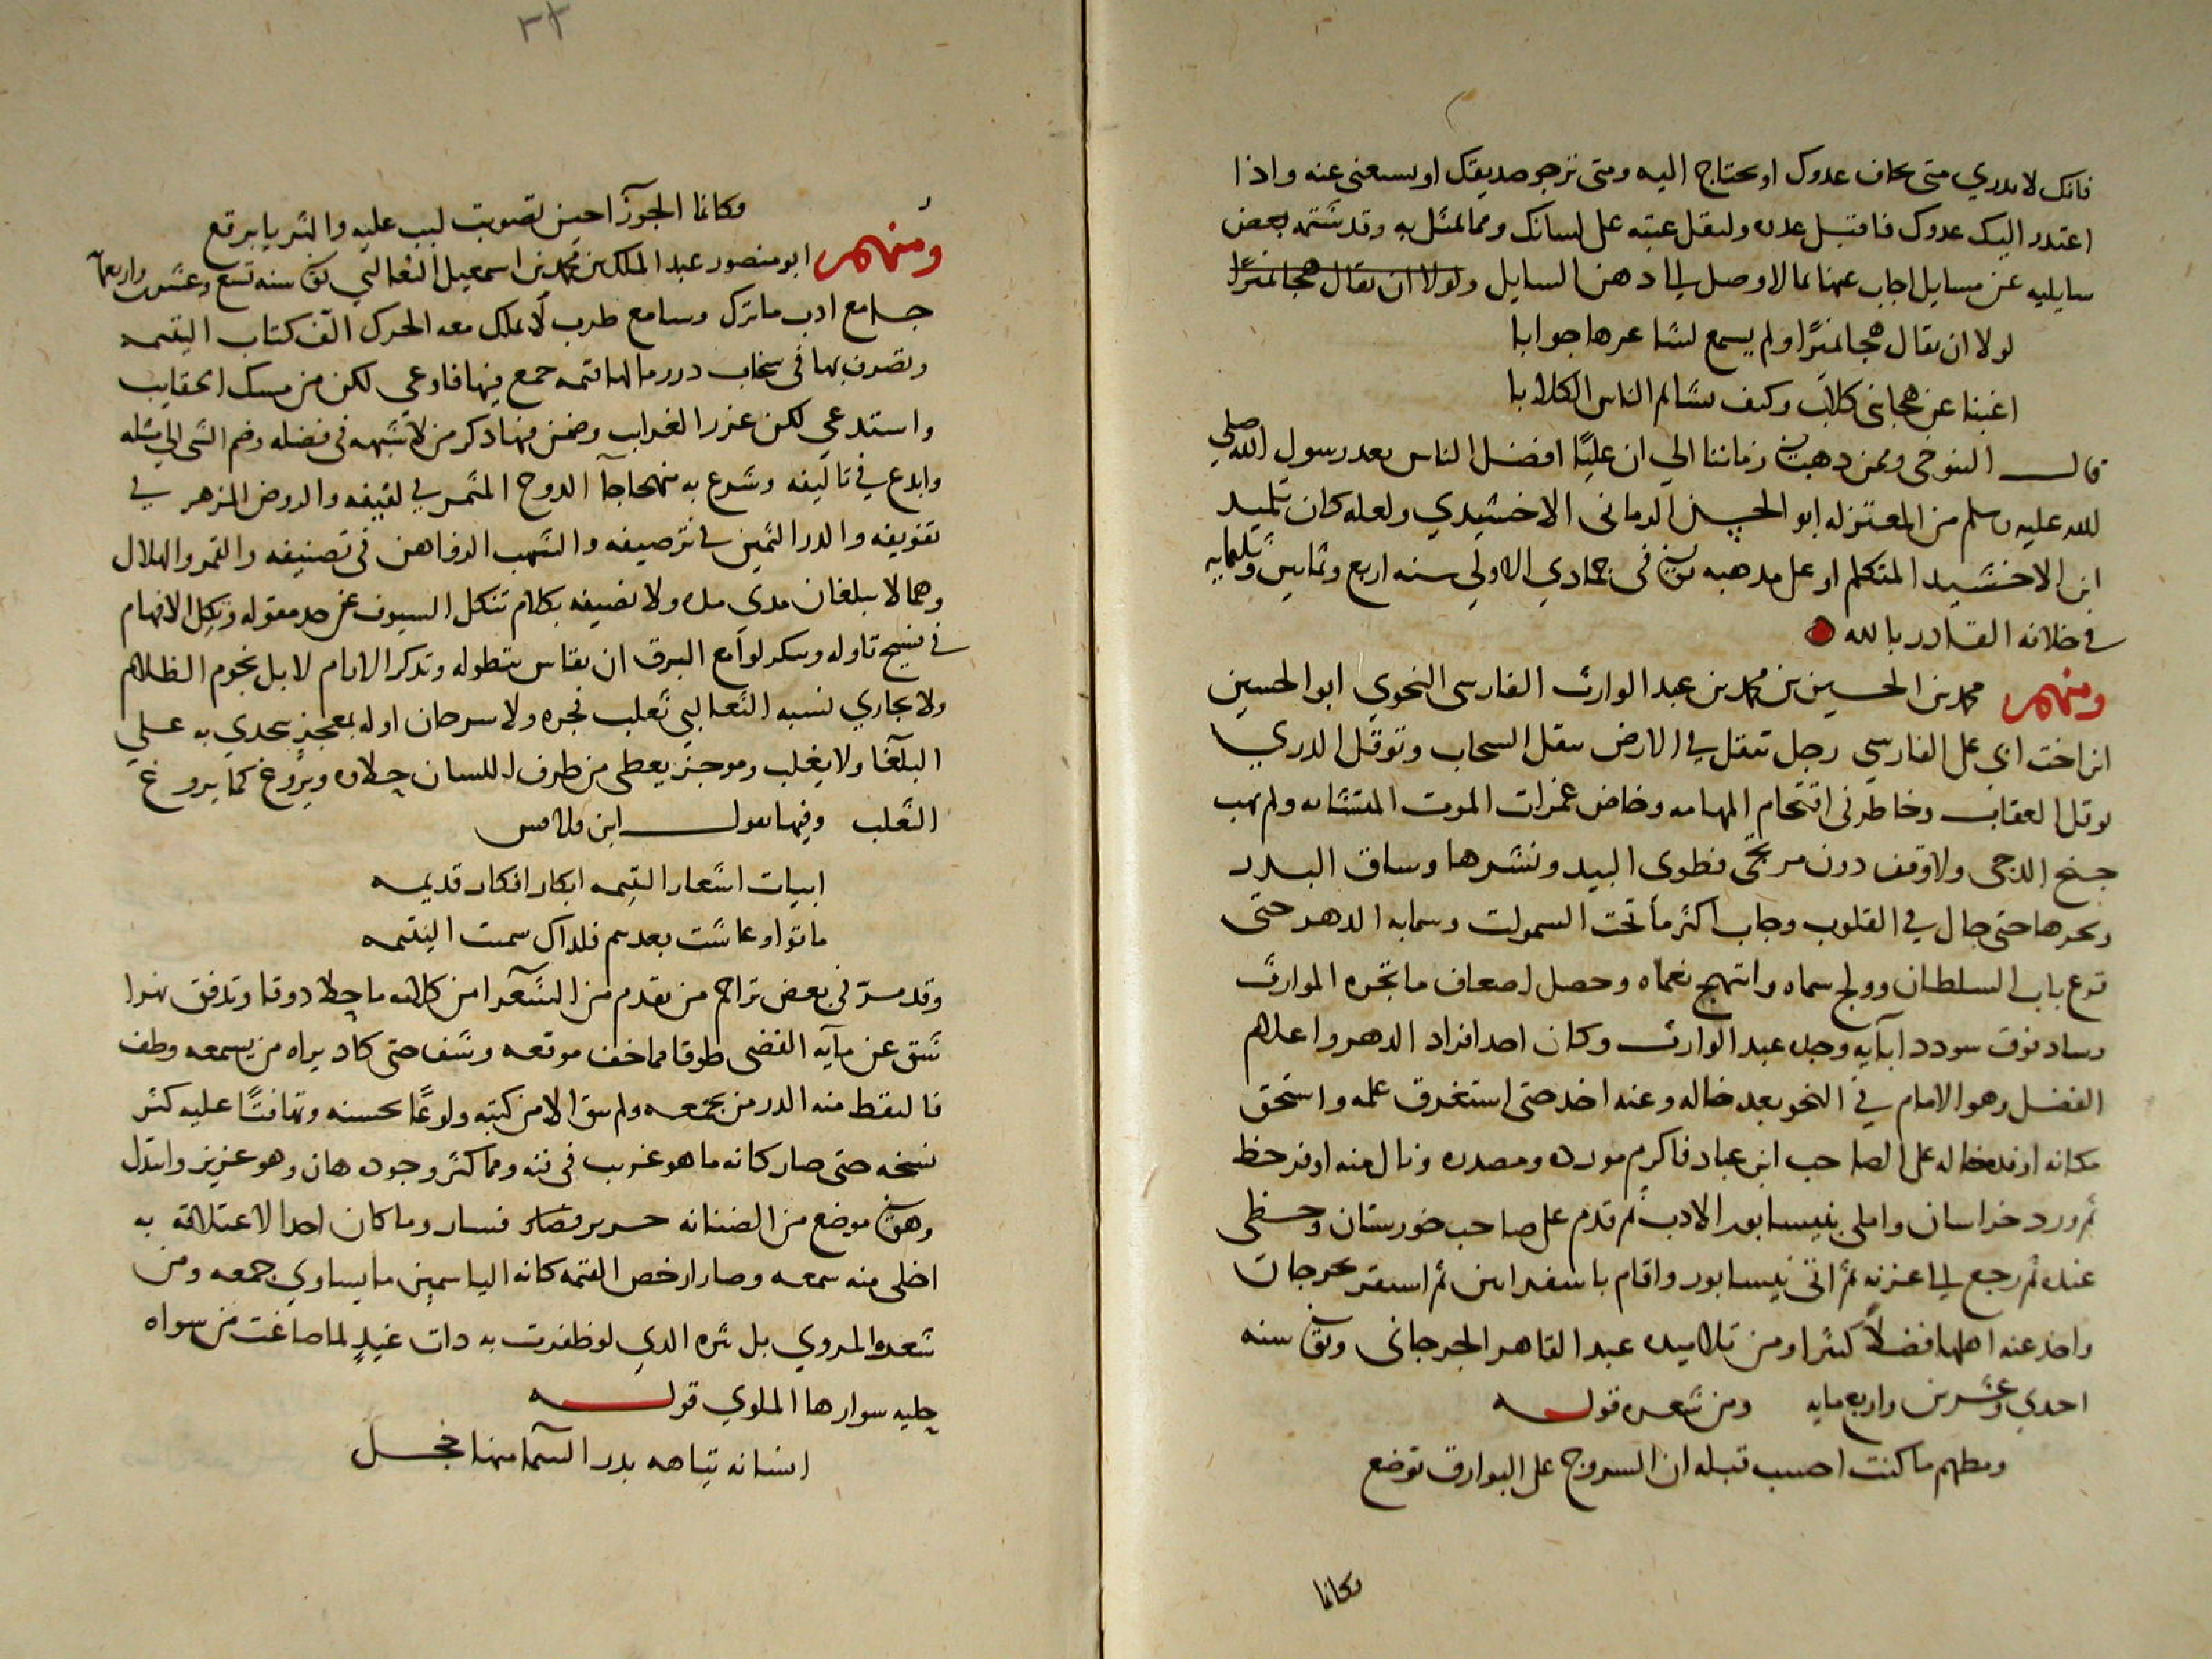 فانك لا تدري متى تخاف عدوك او تحتاج اليه ومتى ترجو صديقك او تستغنى عنه واذا
اعتذر اليك عدوك فاقبل عذره وليقل عتبه على لسانك ومما تمثل به وقد شتمه بعض
سايليه عن مسايل اجاب عنها بما لا وصل الى ذهن السايل ولولا ان يقال هجا نميرا
لولا ان يقال هجا نميرًا ولم يسمع لشاعرها جوابا
اغبنا عن هجا بنى كلابٍ وكيف يشاتم الناس الكلابا
قال التنوخى وممن ذهب في زماننا الي ان عليًا افضل الناس بعد رسول الله صلي
الله عليه وسلم من المعتزله ابو الحسن الرمانى الاخشيدي ولعله كان تلميذ
ابن الاخشيد المتكلم او على مذهبه توفي فى جمادي الاولي سنه اربع وثمانين وثلمايه
في خلافه القادر بالله
ومنهم محمد بن الحسين بن محمد بن عبد الوارث الفارسى النحوي ابو الحسين
ابن اخت ابى على الفارسي رجل تنقل في الارض تنقل السحاب وتوقل الدري
توقل العقاب وخاطر فى اقتحام المهامه وخاض غمرات الموت ولم يهب
جنح الدجى ولا وقف دون مرتجى فطوى البيد ونشرها وساق البدر
ونحرها حتى جال في القلوب وجاب اكثر ما تحت السموات وسما به الدهر حتى
قرع باب السلطان وولج سماه وانتهج نعماه وحصل اضعاف ما تجره الموارث
وساد فوق سودد ابايه وجده عبد الوارث وكان احد افراد الدهر واعلام
الفضل وهو الامام في النحو بعد خاله وعنه اخذ حتى استغرق علمه واستحق
مكانه اوفده خاله على الصاحب ابن عباد فاكرم مورده ومصدره ونال منه اوفر حظ
ثم ورد خراسان واملى بنيسابور الادب ثم قدم على صاحب خورستان وحظى
عنده ثم رجع الى غزنه ثم اتى نيسابور واقام باسفراين ثم استقر بجرجان
واخذ عنه اهلها فضلًا كثيرا ومن تلاميده عبد القاهر الجرجانى وتوفي سنه
احدي وعشرين واربع مايه ومن شعره قوله
ومطهم ما كنت احسب قبله ان السروج على البوارق توضع
وكانما
٢٢
وكانما الجوزآ حين تصوبت لبب عليه والثريا برقع
ومنهم ابو منصور عبد الملك بن محمد بن اسمعيل الثعالبي توفي سنه تسع وعشرين واربعمايه
جامع ادب ما ترك وسامع طرب لا يملك معه الحرك الف كتاب اليتيمه
وتصرف بها فى سحاب درر ما لها قيمه جمع فيها فاوعى لكن من مسك الحقايب
واستدعي لكن غرر الغرايب وضمن منها ذكر من لا شبهه فى فضله وضم الشى الي مثله
وابدع في تاليفه وشرع به منهاجا الدوح المثمر في لفيفه والروض المزهر في
تفويفه والدر الثمين في ترصيفه والشهب الرواهن فى تصنيفه والقمر والهلال
وهما لا يبلغان مدي مده ولا نصيفه بكلام تنكل السيوف عن حد مقوله وتكل الافهام
في نسيج تاوله وينكر لوامع البرق ان يقاس بتطوله وتذكر الايام لا بل نجوم الظلام
ولا يجاري نسبه الثعالبي ثعلب فجره ولا سرحان اوله بمعجزٍ يتحدي به علي
البلغا ولا يغلب وموجز يعطى من طرف اللسان حلاوه ويروغ كما يروغ
الثعلب وفيها يقول ابن قلاقس
ابيات اشعار اليتيمه ابكار افكار قديمه
ماتوا وعاشت بعدهم فلذاك سميت اليتيمه
وقد مرّ فى بعض تراجم من تقدم من الشعرا من كلامه ما حلا ذوقا وتدفق نهرا
شق عن مايه الفضى طوقا مما خف موقعه وشف حتى كاد يراه من يسمعه وطف
فالتقط منه الدر من يجمعه ولم يبق الا من كتبه ولوعًا بحسنه وتهافتًا عليه كثر
نسخه حتى صار كانه ما هو غريب فى فنه ومما كثر وجوده هان وهو عزيز وابتذل
وهو في موضع من الضنانه حرير فصار فسار وما كان احد الاعتلاقه به
اخلى منه سمعه وصار ارخص القيمه كانه الياسمين ما يساوي جمعه ومن
شعره المروي بل نثره الذي لو ظفرت به ذات غيدٍ لما صاغت من سواه
حليه سوارها الملوي قوله
انسانه تياهه بدر السما منها خجل